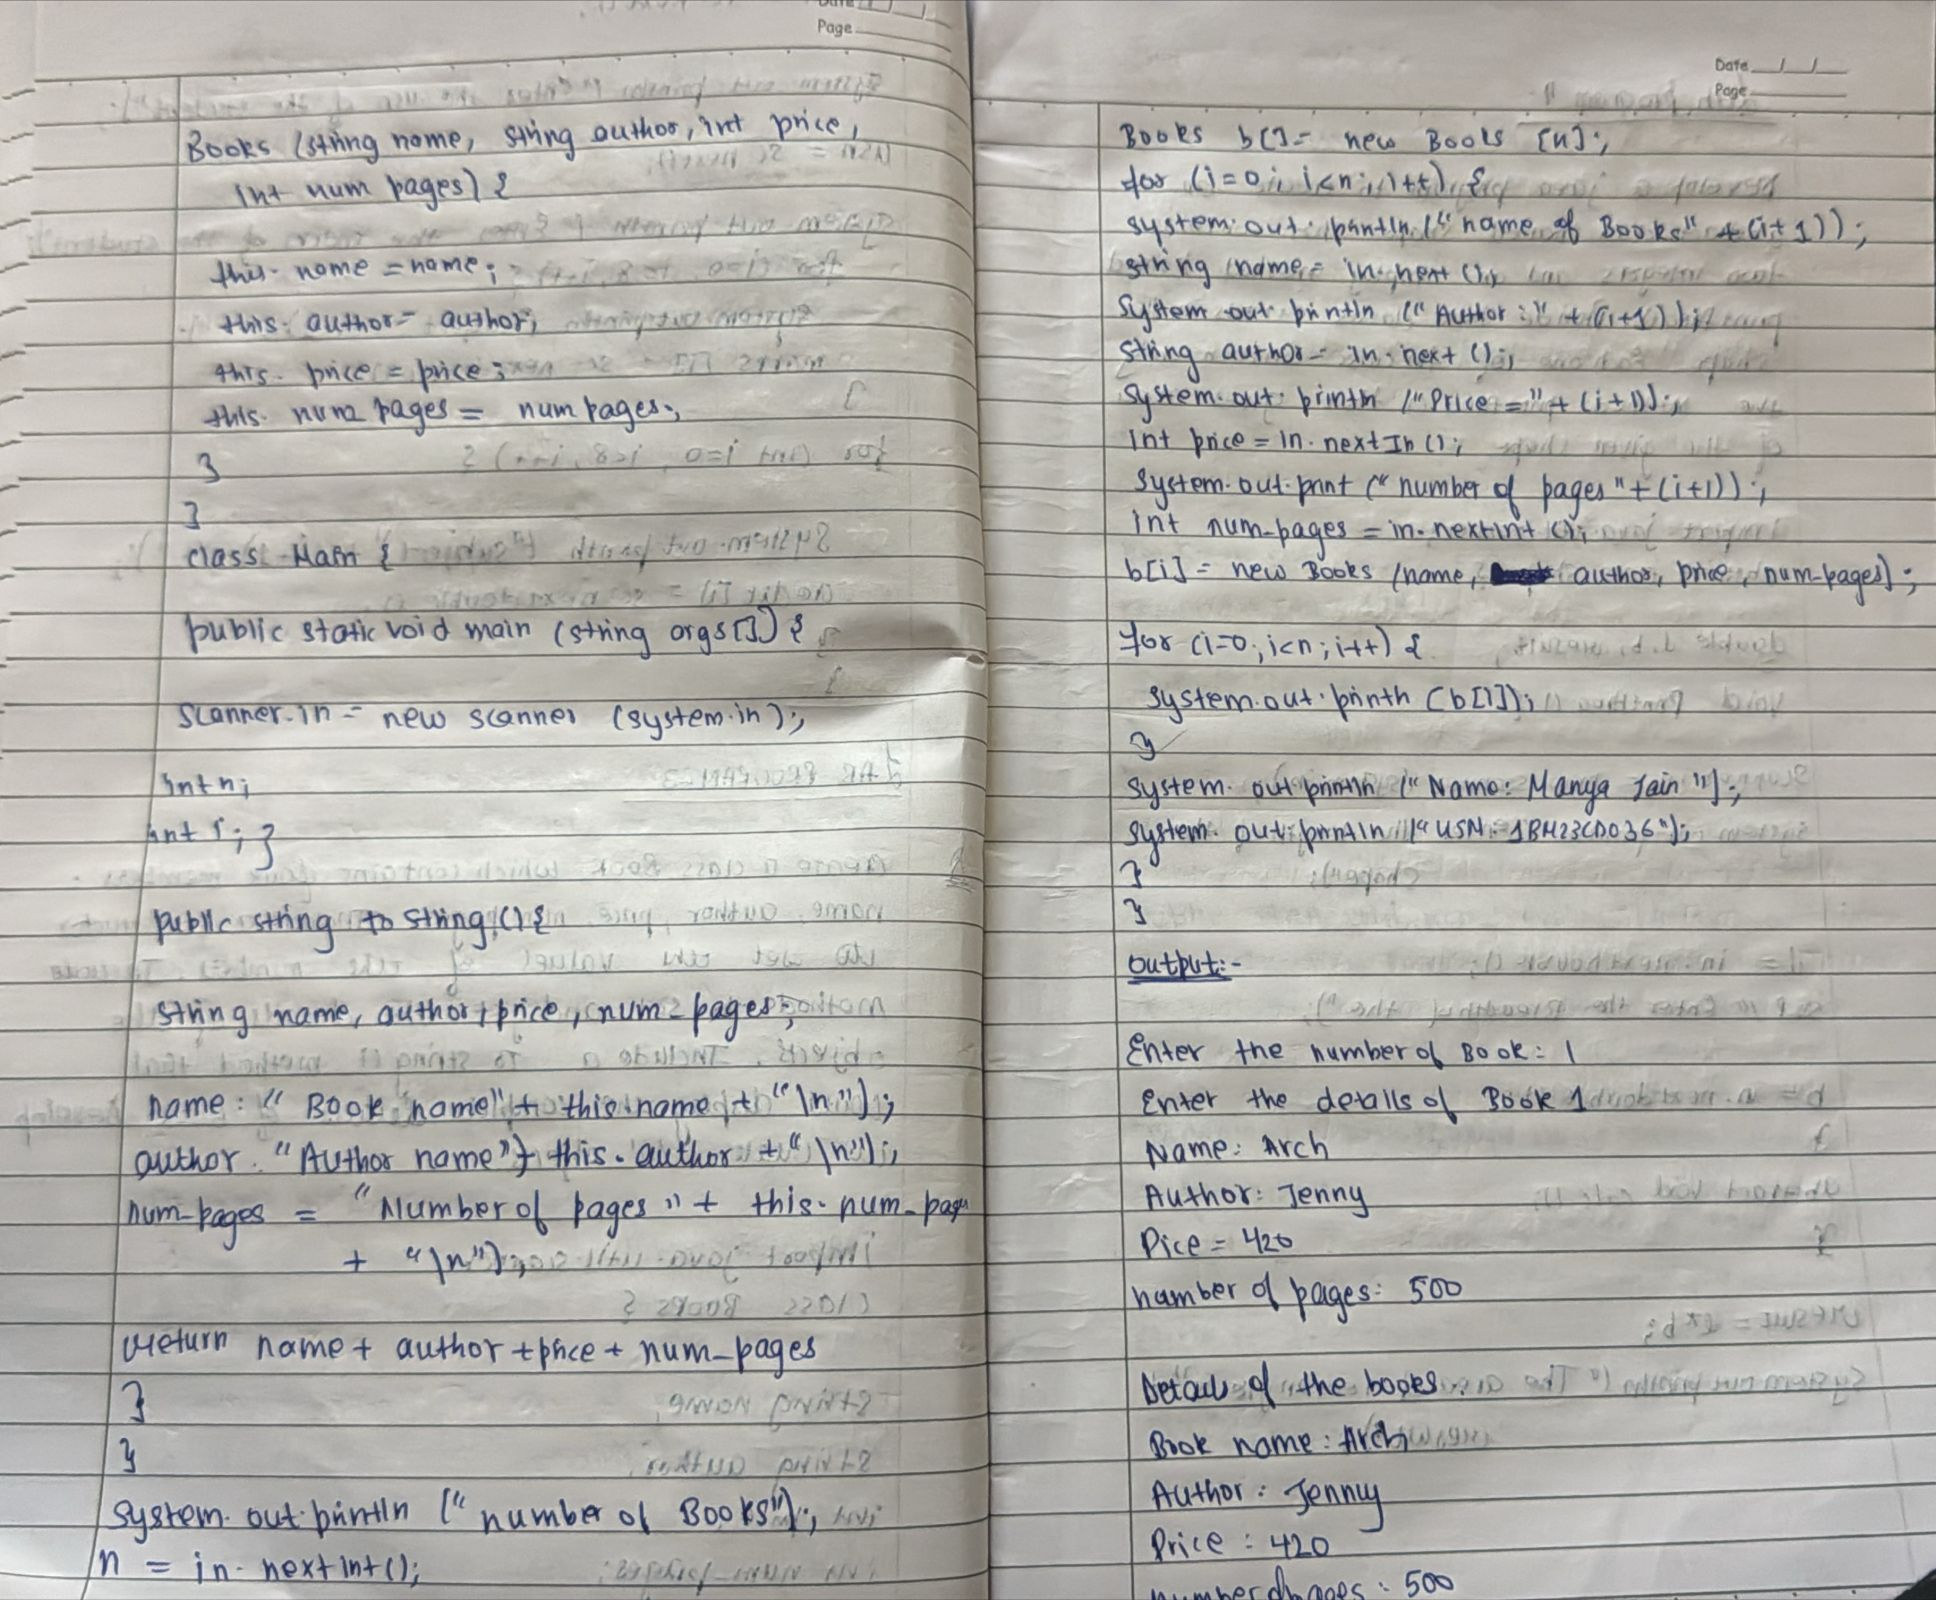 Page
Books (string name, string author, int price,
int num pages) {
this. name = name;
this. author = author;
this. price = price;
this. num pages = num pages;
}
}
class Main {
public static void main (string args[]) {
scanner.in = new scanner (system.in);
int n;
int i; }
public string to string () {
string name, author, price, num-pages;
name: " Book name" + this.name + "\n");
author. "Author name" + this. author + "\n");
num-pages = "Number of pages" + this. num-pages
+ "\n");
return name + author + price + num-pages
}
}
system. out. println (" number of Books");
n = in. next int();
Date
Page
Books b[] = new Books [n];
for (i=0; i<n; i++) {
system. out. println (" name of Books" + (i+1));
string name = in. next ();
System out. println (" Author :" + (i+1));
string author = in. next ();
system. out. println ("Price =" + (i+1));
int price = in. next In ();
System. out. print (" number of pages "+ (i+1));
int num-pages = in. next int ();
b[i] = new Books (name, author, price, num-pages);
for (i=0; i<n; i++) {
system. out. println (b[i]);
}
system. out println (" Name: Manya Jain ");
system. out. println (" USN: 1BM23CD036");
}
}
output:-
Enter the number of Book: 1
Enter the details of Book 1
Name: Arch
Author: Jenny
Pice = 420
number of pages: 500
Details of the books
Book name: Arch
Author: Jenny
Price : 420
number of pages : 500